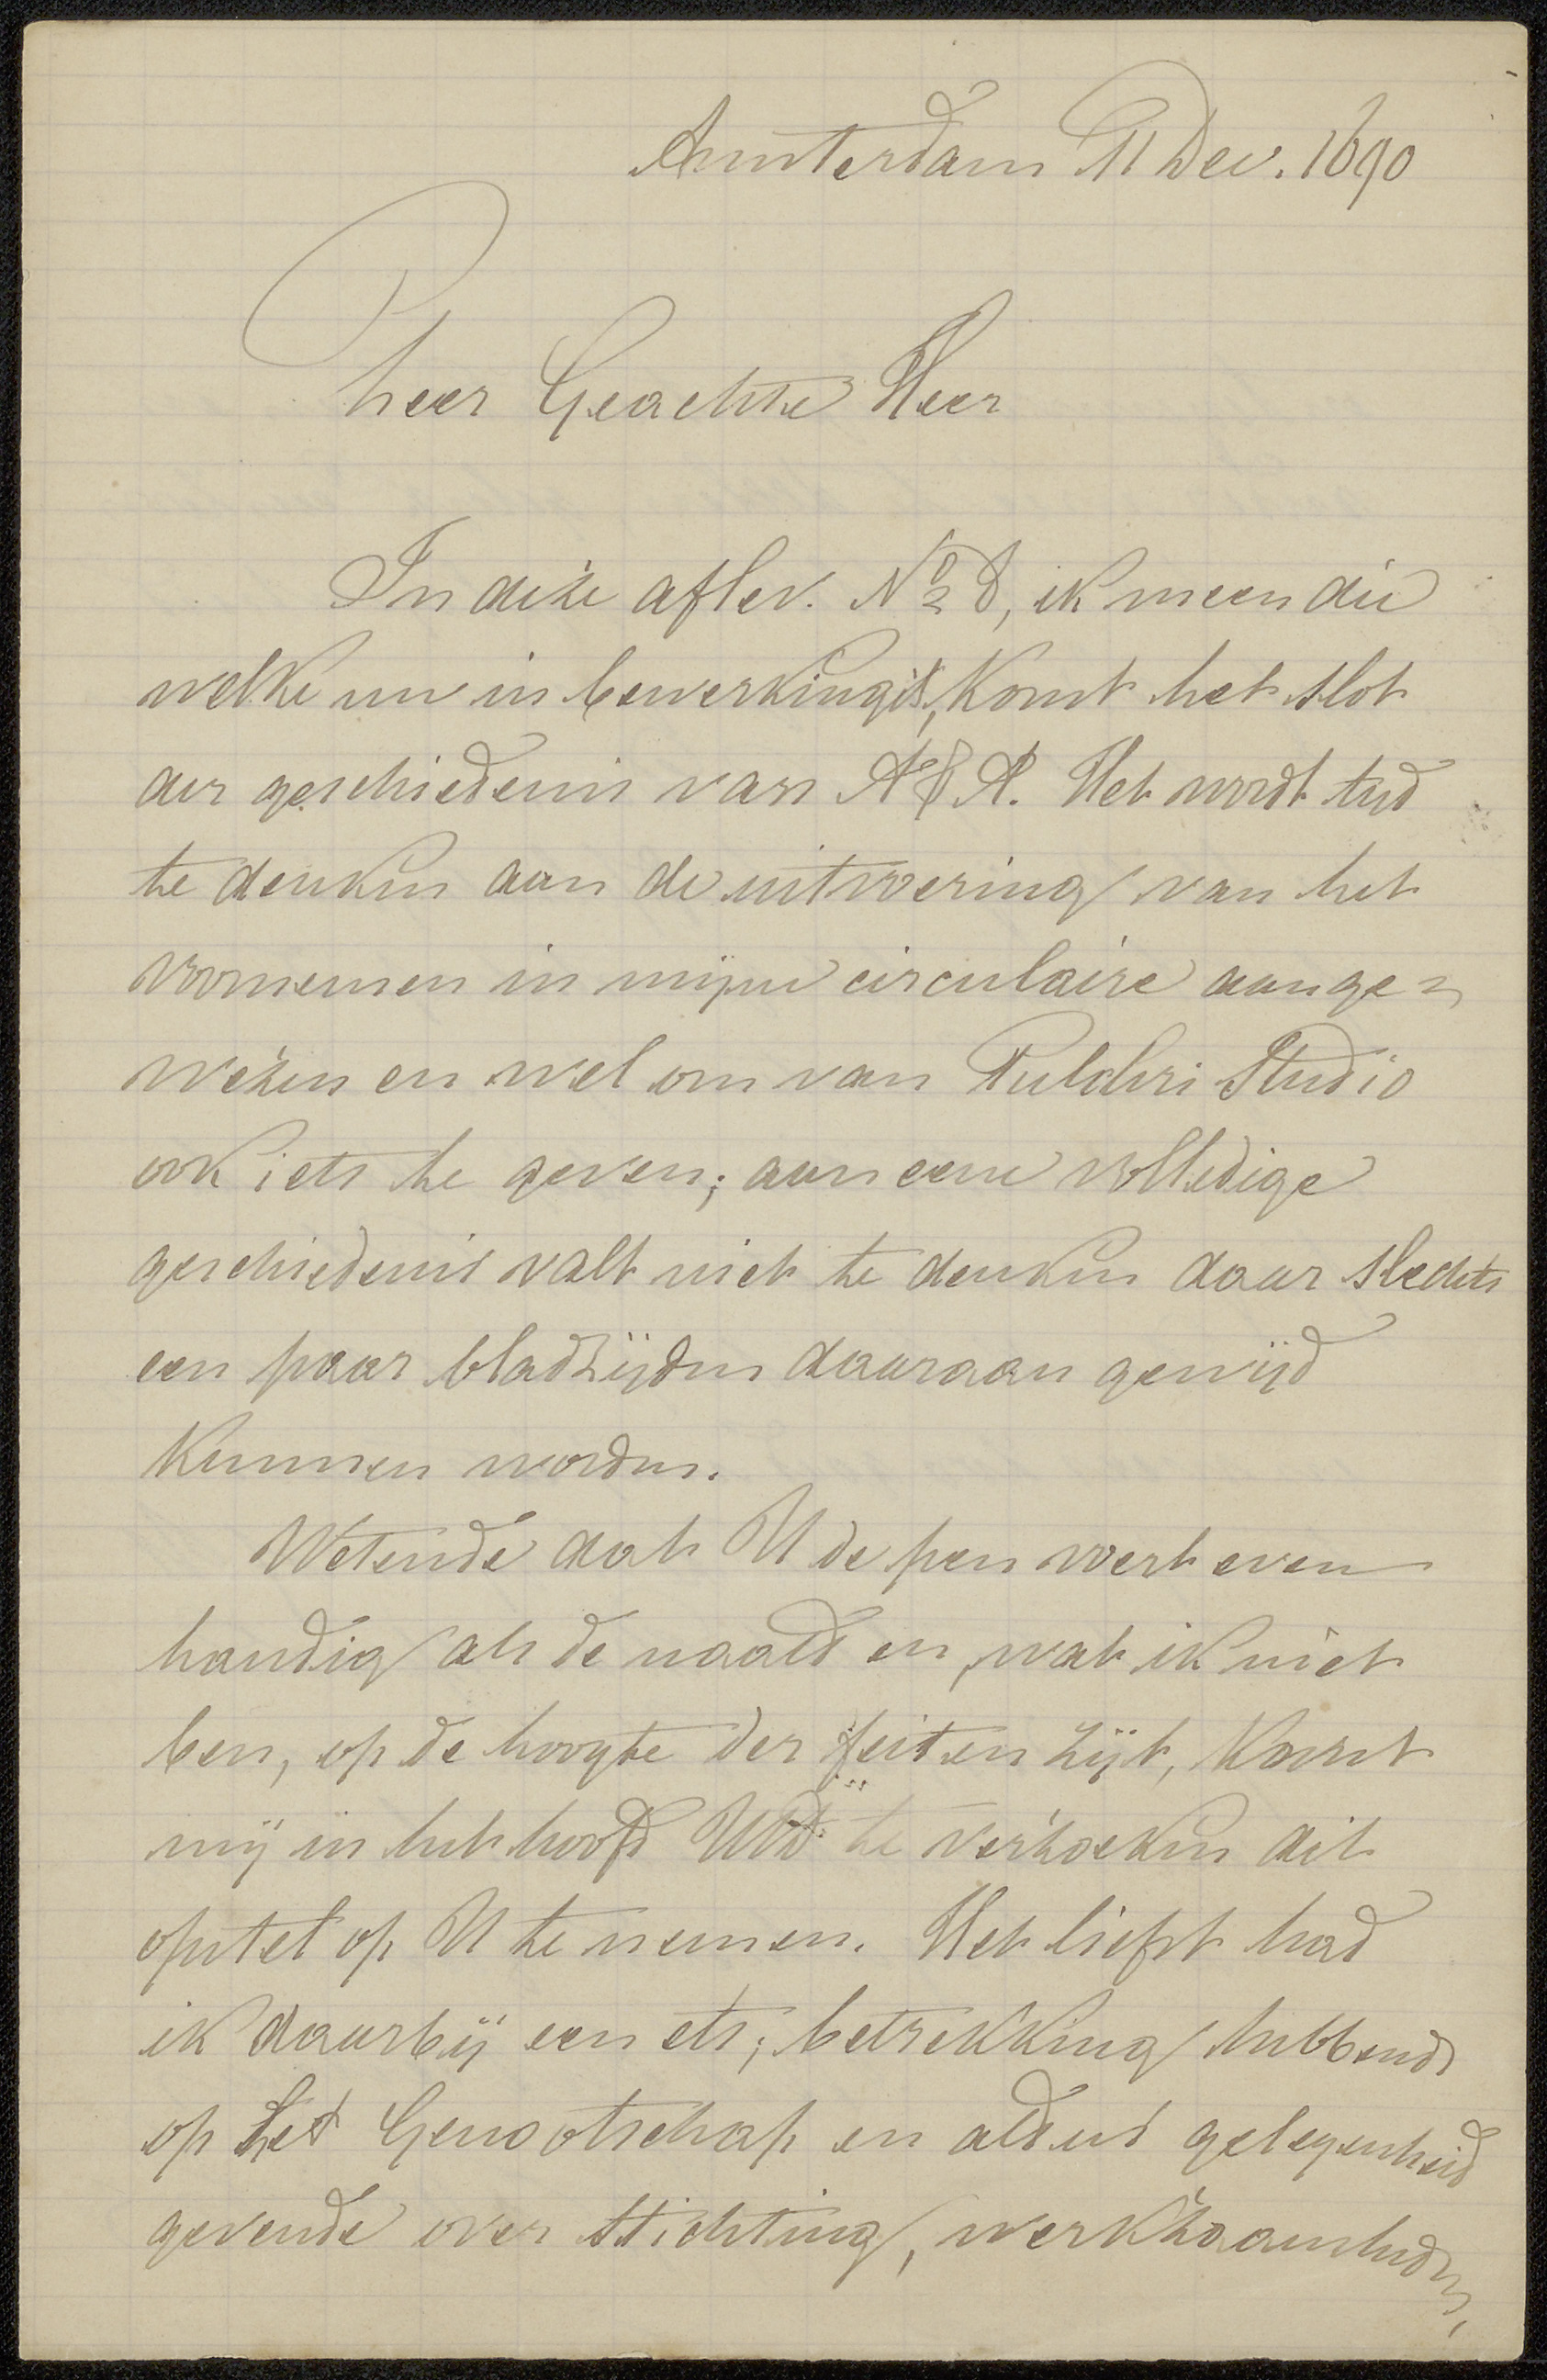 Amsterdam 11 Dec. 1890
Zeer Geachte Heer
In deze aflev. No 8, ik meen die
welke nu in bewerking is, komt het slot
der geschiedenis van A & A. Het wordt tijd
te denken aan de uitvoering van het
voornemen in mijne circulaire aange=
wezen en wel om van Pulchri Studio
ook iets te geven; aan eene volledige
geschiedenis valt niet te denken daar slechts
een paar bladzijden daaraan gewijd
kunnen worden.
Wetende dat U de pen voert even
handig als de naald en, wat ik niet
ben, op de hoogte der feiten zijt, komt
mij in het hoofd UEd te verzoeken dit
opstel op U te nemen. Het liefst had
ik daarbij een ets, betrekking hebbende
op het Genootschap en aldus gelegenheid
gevende over stichting, werkzaamheden,